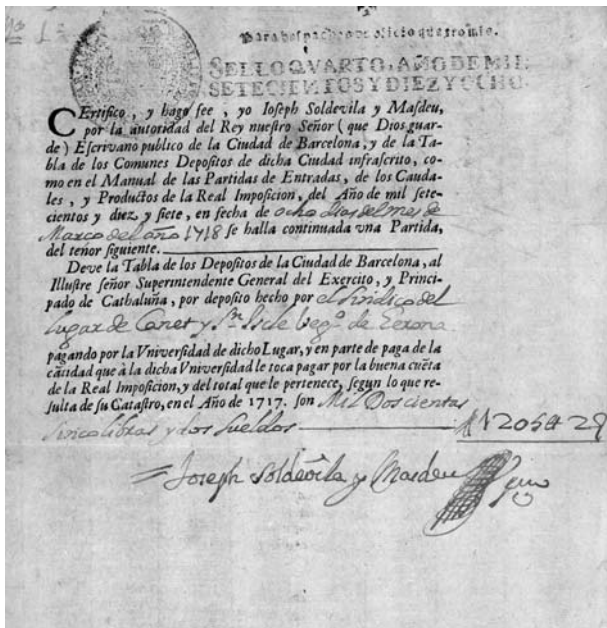 Para despachos de oficio quatro mrs.
SELLO QVARTO, AÑO DE MIL
SETECIENTOS Y DIEZ Y OCHO.
CErtifico, y hago fee, yo Ioseph Soldevila y Masdeu,
por la autoridad del Rey nuestro Señor (que Dios guar-
de) Escrivano publico de la Ciudad de Barcelona, y de la Ta-
bla de los Comunes Depositos de dicha Ciudad infrascrito, co-
mo en el Manual de las Partidas de Entradas, de los Cauda-
les, y Productos de la Real Imposicion, del Año de mil sete-
cientos y diez y siete, en fecha de ocho dias del mes de
Marco del año 1718 se halla continuada vna Partida,
del tenor siguiente.
Deve la Tabla de los Depositos de la Ciudad de Barcelona, al
Illustre señor Superintendente General del Exercito, y Princi-
pado de Cathaluña, por deposito hecho por el Sindico del
lugar de Canet y Sn. Iscle Vegª. de Gerona
pagando por la Vniversidad de dicho Lugar, y en parte de paga de la
cãtidad que à la dicha Vniversidad le toca pagar por la buena cuẽta
de la Real Imposicion, y del total que le pertenece, segun lo que re-
sulta de su Catastro, en el Año de 1717. son Mil Doscientas
sinco libras y dos sueldos 1205 2
Joseph Soldevila y Masdeu